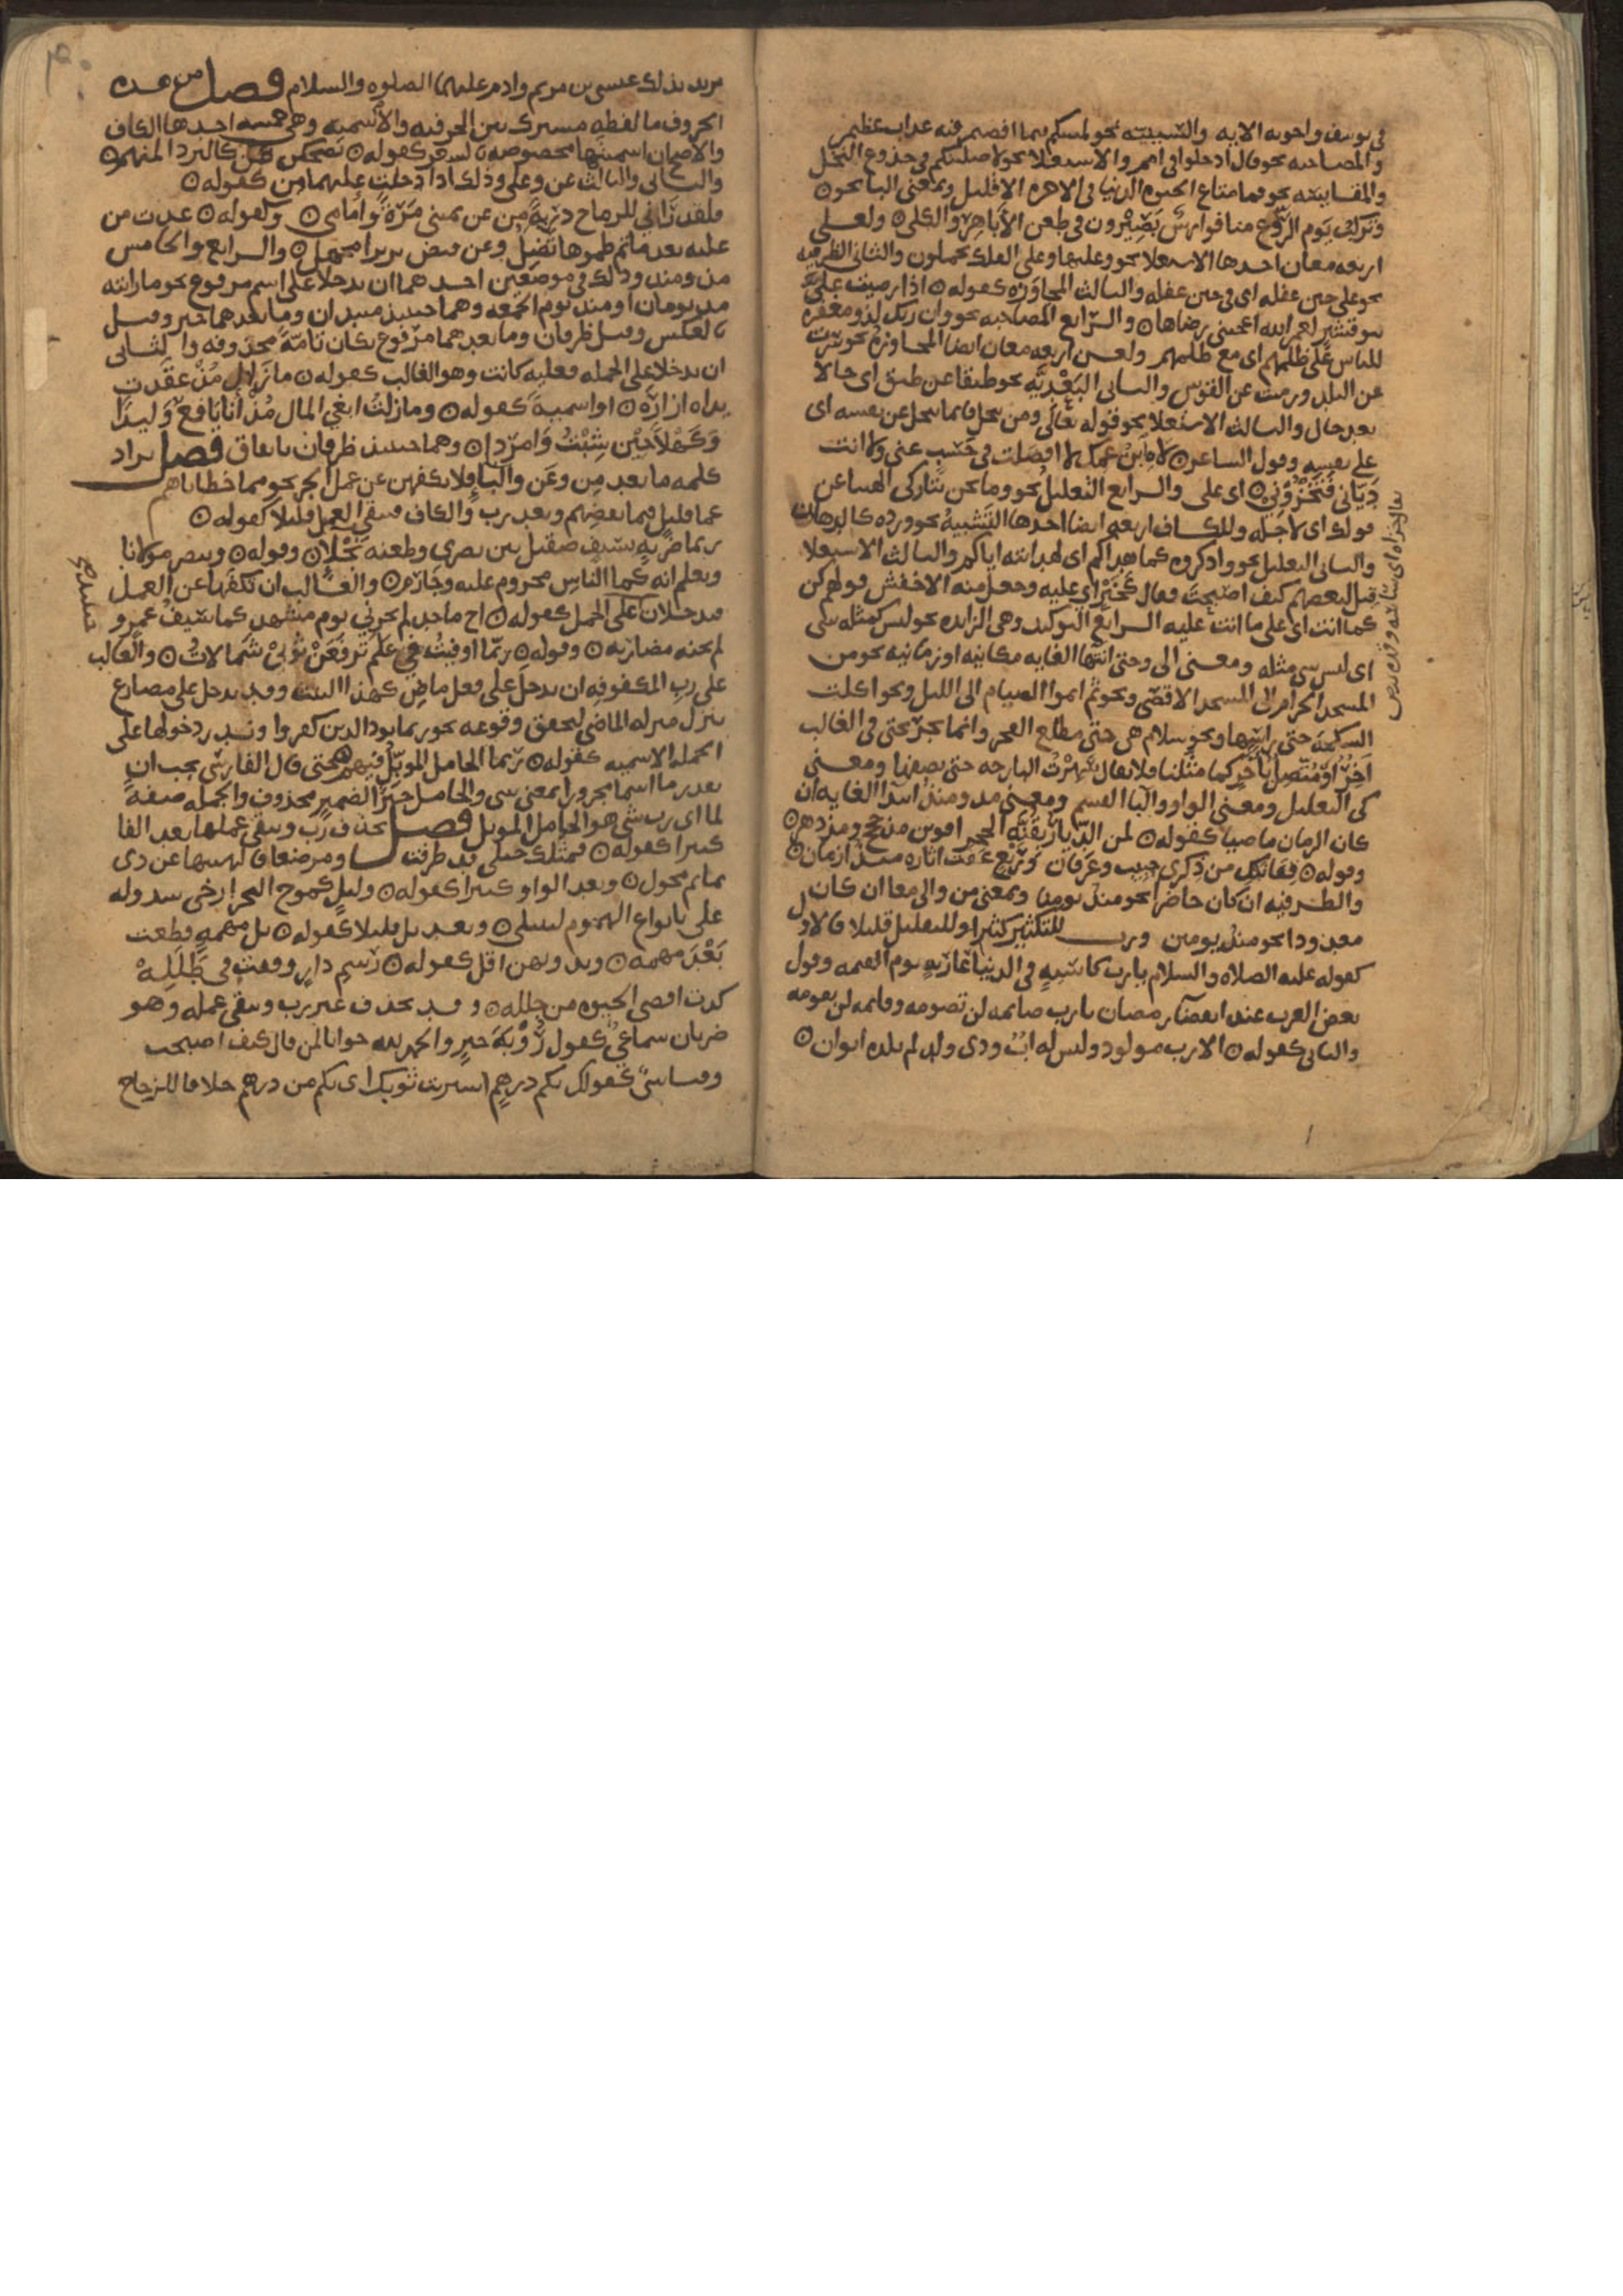 في يوسف واخوته الايه والسببيه نحو لمسكم فيما افضتم فيه عذاب عظيم
والمصاحبه نحو قال ادخلوا في امم والاستعلا نحو لاصلبنكم في جذوع النخل
والمقايسه نحو فما متاع الحيوه الدنيا في الاخره الا قليل وبمعنى البا نحو ۞
وتركب يوم الروع منا فوارس بصيرون في طعن الاباهر والكلى ۞ ولعلى
اربعه معان احدها الاستعلا نحو وعليها وعلى الفلك تحملون والثاني الظرفيه
نحو على حين غفله اي في حين غفله والثالث المجاوزه كقوله ۞ اذا رضيت علي
بنو قشير لعمر الله اعجبني رضاها ۞ والرابع المصاحبه نحو وان ربك لذو مغفره
للناس على ظلمهم اي مع ظلمهم ولعن اربعه معان ايضا المجاوزه نحو سرت
عن البلد ورميت عن القوس والثاني البعديه نحو طبقا عن طبق اي حالا
بعد حال والثالث الاستعلا نحو قوله تعالى ومن يبخل فانما يبخل عن نفسه اي
على نفسه وقول الشاعر ۞ لاه ابن عمك لا افضلت في حسب عني ولا انت
دياني فتخزوني ۞ اي علي والرابع التعليل نحو وما نحن بتاركي الهتنا عن
قولك اي لاجله وللكاف اربعه ايضا احدها التشبيه نحو ورده كالدهان
والثاني التعليل نحو واذكروه كما هداكم اي لهدايته اياكم والثالث الاستعلا
قيل لبعضهم كيف اصبحت فقال كخير اي عليه وجعل منه الاخفش قولهم كن
كما انت اي على ما انت عليه الرابع التوكيد وهي الزايده نحو ليس كمثله شي
اي ليس شي مثله ومعنى الى وحتى انتها الغايه مكانيه او زمانيه نحو من
المسجد الحرام الى المسجد الاقصى ونحو ثم اتموا الصيام الى الليل ونحو اكلت
السمكه حتى راسها ونحو سلام هي حتى مطلع الفجر وانما يجر بحتى في الغالب
اخر او متصل باخر كما مثلنا فلا يقال سهرت البارحه حتى نصفها ومعنى
كي التعليل ومعنى الواو والتا القسم ومعنى مذ ومنذ ابتدا الغايه ان
كان الزمان ماضيا كقوله ۞ لمن الديار بقنه الحجر اقوين مذ حجج ومذ دهر ۞
وقوله ۞ قفا نبك من ذكرى حبيب وعرفان وربع عفت اثاره منذ ازمان ۞
والظرفيه ان كان حاضرا نحو منذ يومنا وبمعنى من والى معا ان كان
معدودا نحو منذ يومين ورب للتكثير كثيرا وللتقليل قليلا فالاول
كقوله عليه الصلاه والسلام يا رب كاسيه في الدنيا عاريه يوم القيمه وقول
بعض العرب عند انقضا رمضان يا رب صايمه لن تصومه وقايمه لن يقومه
والثاني كقوله ۞ الا رب مولود وليس له اب وذي ولد لم يلده ابوان ۞
يريد بذلك عيسى بن مريم وادم عليهما الصلوه والسلام فصل من هذه
الحروف ما لفظه مشترك بين الحرفيه والاسميه وهي خمسه احدها الكاف
والاصح ان اسميتها مخصوصه بالشعر كقوله ۞ يضحكن عن كالبرد المنهم ۞
والثاني والثالث عن وعلى وذلك اذا دخلت عليهما من كقوله ۞
فلقد اراني للرماح دريه من عن يميني مره وامامي ۞ وكقوله ۞ غدت من
عليه بعد ما تم ظمؤها تصل وعن قيض بزيزا مجهل ۞ والرابع والخامس
مذ ومنذ وذلك في موضعين احدهما ان يدخلا على اسم مرفوع نحو ما رايته
مذ يومان او منذ يوم الجمعه وهما حينيذ مبتدان وما بعدهما خبر وقيل
بالعكس وقيل ظرفان وما بعدهما مرفوع بكان تامه محذوفه والثاني
ان يدخلا على الجمله فعليه كانت وهو الغالب كقوله ۞ ما زال مذ عقدت
يداه ازاره ۞ او اسميه كقوله ۞ وما زلت ابغي المال مذ انا يافع وليدا
وكهلا حين شبت وامردا ۞ وهما حينيذ ظرفان باتفاق فصل تزاد
كلمه ما بعد من وعن والبا فلا تكفهن عن عمل الجر نحو مما خطاياهم
عما قليل فبما نقضهم وبعد رب والكاف فيبقى العمل قليلا كقوله ۞
ربما ضربه بسيف صقيل بين بصرى وطعنه نجلا ۞ وقوله ۞ وننصر مولانا
ونعلم انه كما الناس مجروم عليه وجارم ۞ والغالب ان تكفها عن العمل
فيدخلان على الجمل كقوله ۞ اخ ماجد لم يخزني يوم مشهد كما سيف عمرو
لم تخنه مضاربه ۞ وقوله ۞ ربما اوفيت في علم ترفعن ثوبي شمالات ۞ والغالب
على رب المكفوفه ان تدخل على فعل ماض كهذا البيت وقد تدخل على مضارع
ينزل منزله الماضي لتحقق وقوعه نحو ربما يود الذين كفروا وندر دخولها على
الجمله الاسميه كقوله ۞ ربما الجامل الموبل فيهم حتى قال الفارسي يجب ان
تقدر ما اسما مجرورا بمعنى شي والجامل خبرا لضمير محذوف والجمله صفه
لما اي رب شي هو الجامل الموبل فصل تحذف رب ويبقى عملها بعد الفا
كثيرا كقوله ۞ فمثلك حبلى قد طرقت ومرضعا فالهيتها عن ذي
تمايم محول ۞ وبعد الواو كثيرا كقوله ۞ وليل كموج البحر ارخى سدوله
علي بانواع الهموم ليبتلي ۞ وبعد بل قليلا كقوله ۞ بل مهمه قطعت
بعد مهمه ۞ وبدونهن اقل كقوله ۞ رسم دار وقفت في طلله
كدت اقضي الحيوه من جلله ۞ وقد يحذف غير رب ويبقى عمله وهو
ضربان سماعي كقول روبه خير والحمد لله جوابا لمن قال كيف اصبحت
وقياسي كقولك بكم درهم اشتريت ثوبك اي بكم من درهم خلافا للزجاج